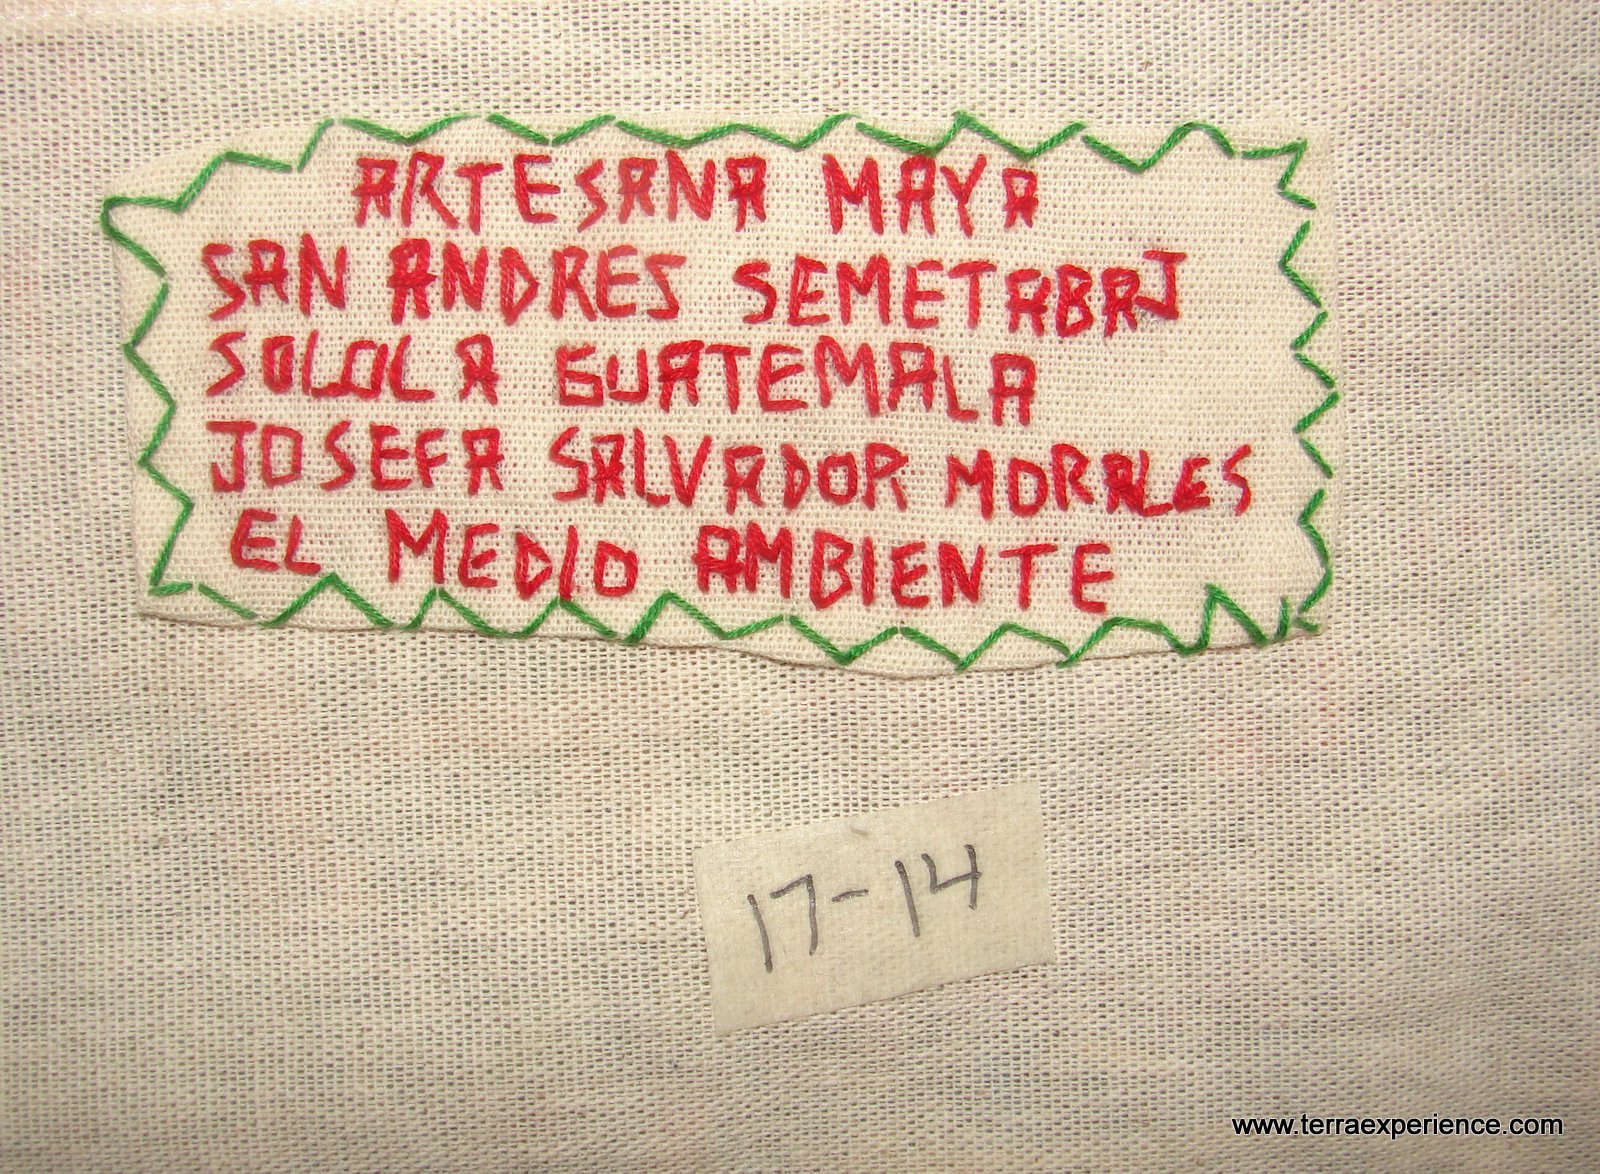 ARTESANA MAYA
SAN ANDRES SEMETABAJ
SOLOLA GUATEMALA
JOSEFA SALVADOR MORALES
EL MEDIO AMBIENTE
17-14
www.terraexperience.com